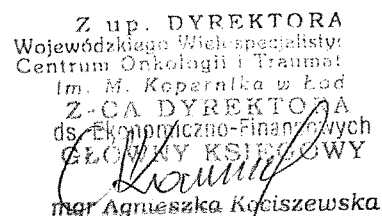 Z up. DYREKTORA
Wojewódzkiego Wielospecjalisty
Centrum Onkologii i Traumat
im. M. Kopernika w Łod
Z-CA DYREKTORA
ds. Ekonomiczno-Finansowych
GŁÓWNY KSIĘGOWY
mgr Agnieszka Kociszewska